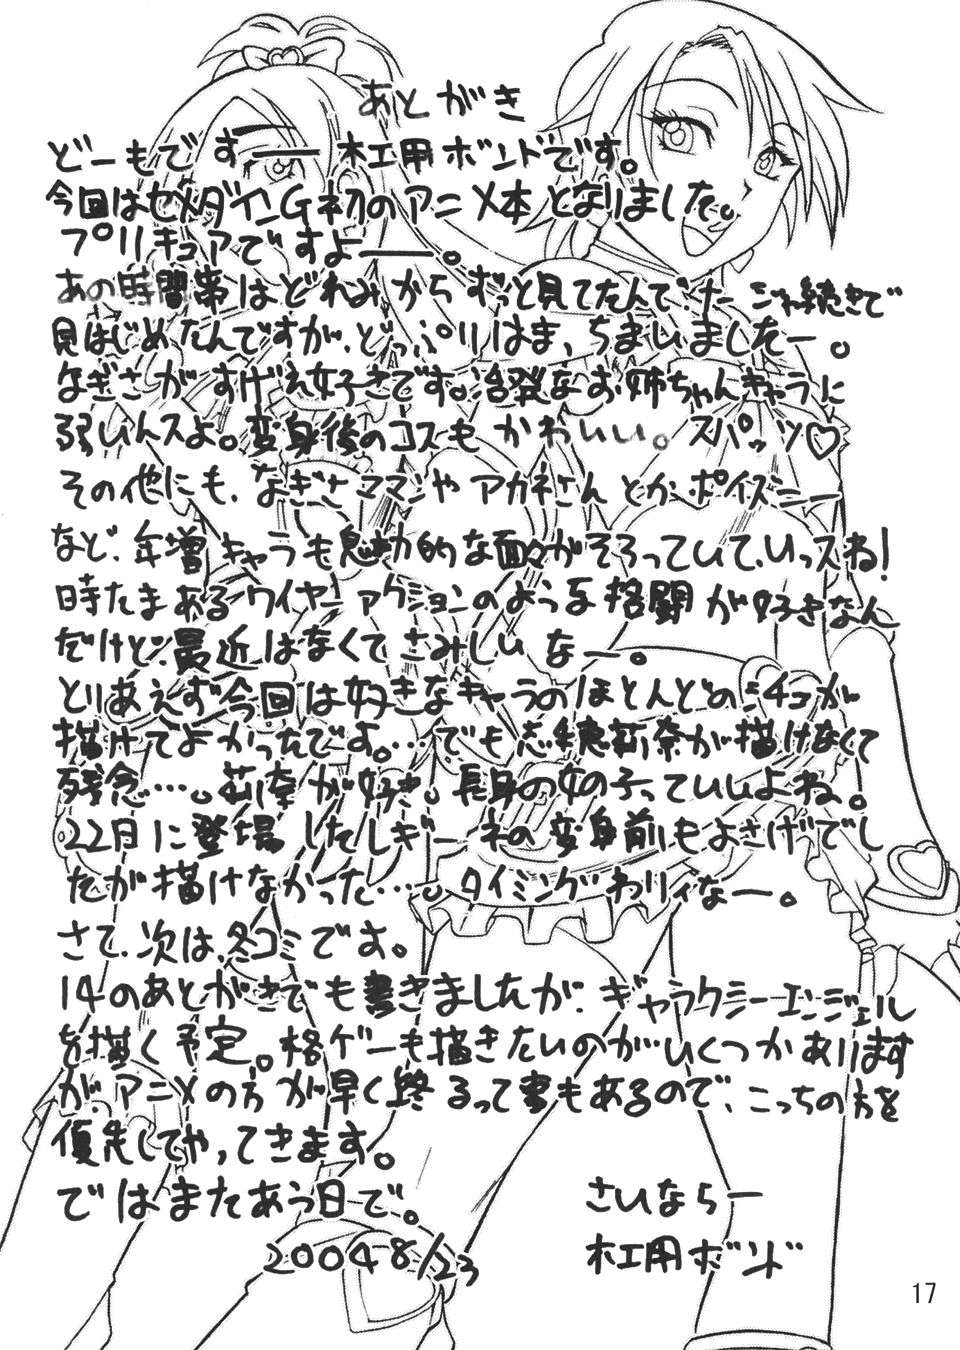 あとがき
どーもですー 木工用ボンドです。
今回はセメダインG初のアニメ本となりました。
プリキュアですよー。
あの時間帯はどれみからずっと見てたんでオー ジャ続きで
見はじめたんですが、どっぷりはま、ちまいましたー。
なぎさがすげえ好きです。活発なお姉ちゃんキャラに
弱いんスよ。変身後のコスもかわいい。スパッツ♡
その他にも、なぎさママンやアカネさんとかポイズニー
など、年増キャラも魅力的な面々がそろっていて、いっスね!
時たまあるワイヤーアクションのような格闘が好きなん
だけど、最近はなくてさみしいなー。
とりあえず今回は好きなキャラのほとんどのシチュが
描けてよかったです。…でも志穂莉奈が描けなくて
残念…。莉奈が好き。長身の女の子っていいよね。
22日に登場したレギーネの変身前もよさげでし
たが描けなかった…。タイミングわりィなー。
さて、次は、冬コミです。
14のあとがきでも書きましたが、ギャラクシーエンジェル
を描く予定。格ゲーも描きたいのが…いくつかあります
が、アニメの方が早く終るって事もあるので、こっちの方を
優先してやってきます。
ではまたあう日で。
さいならー
2004 8/23
木工用ボンド
17